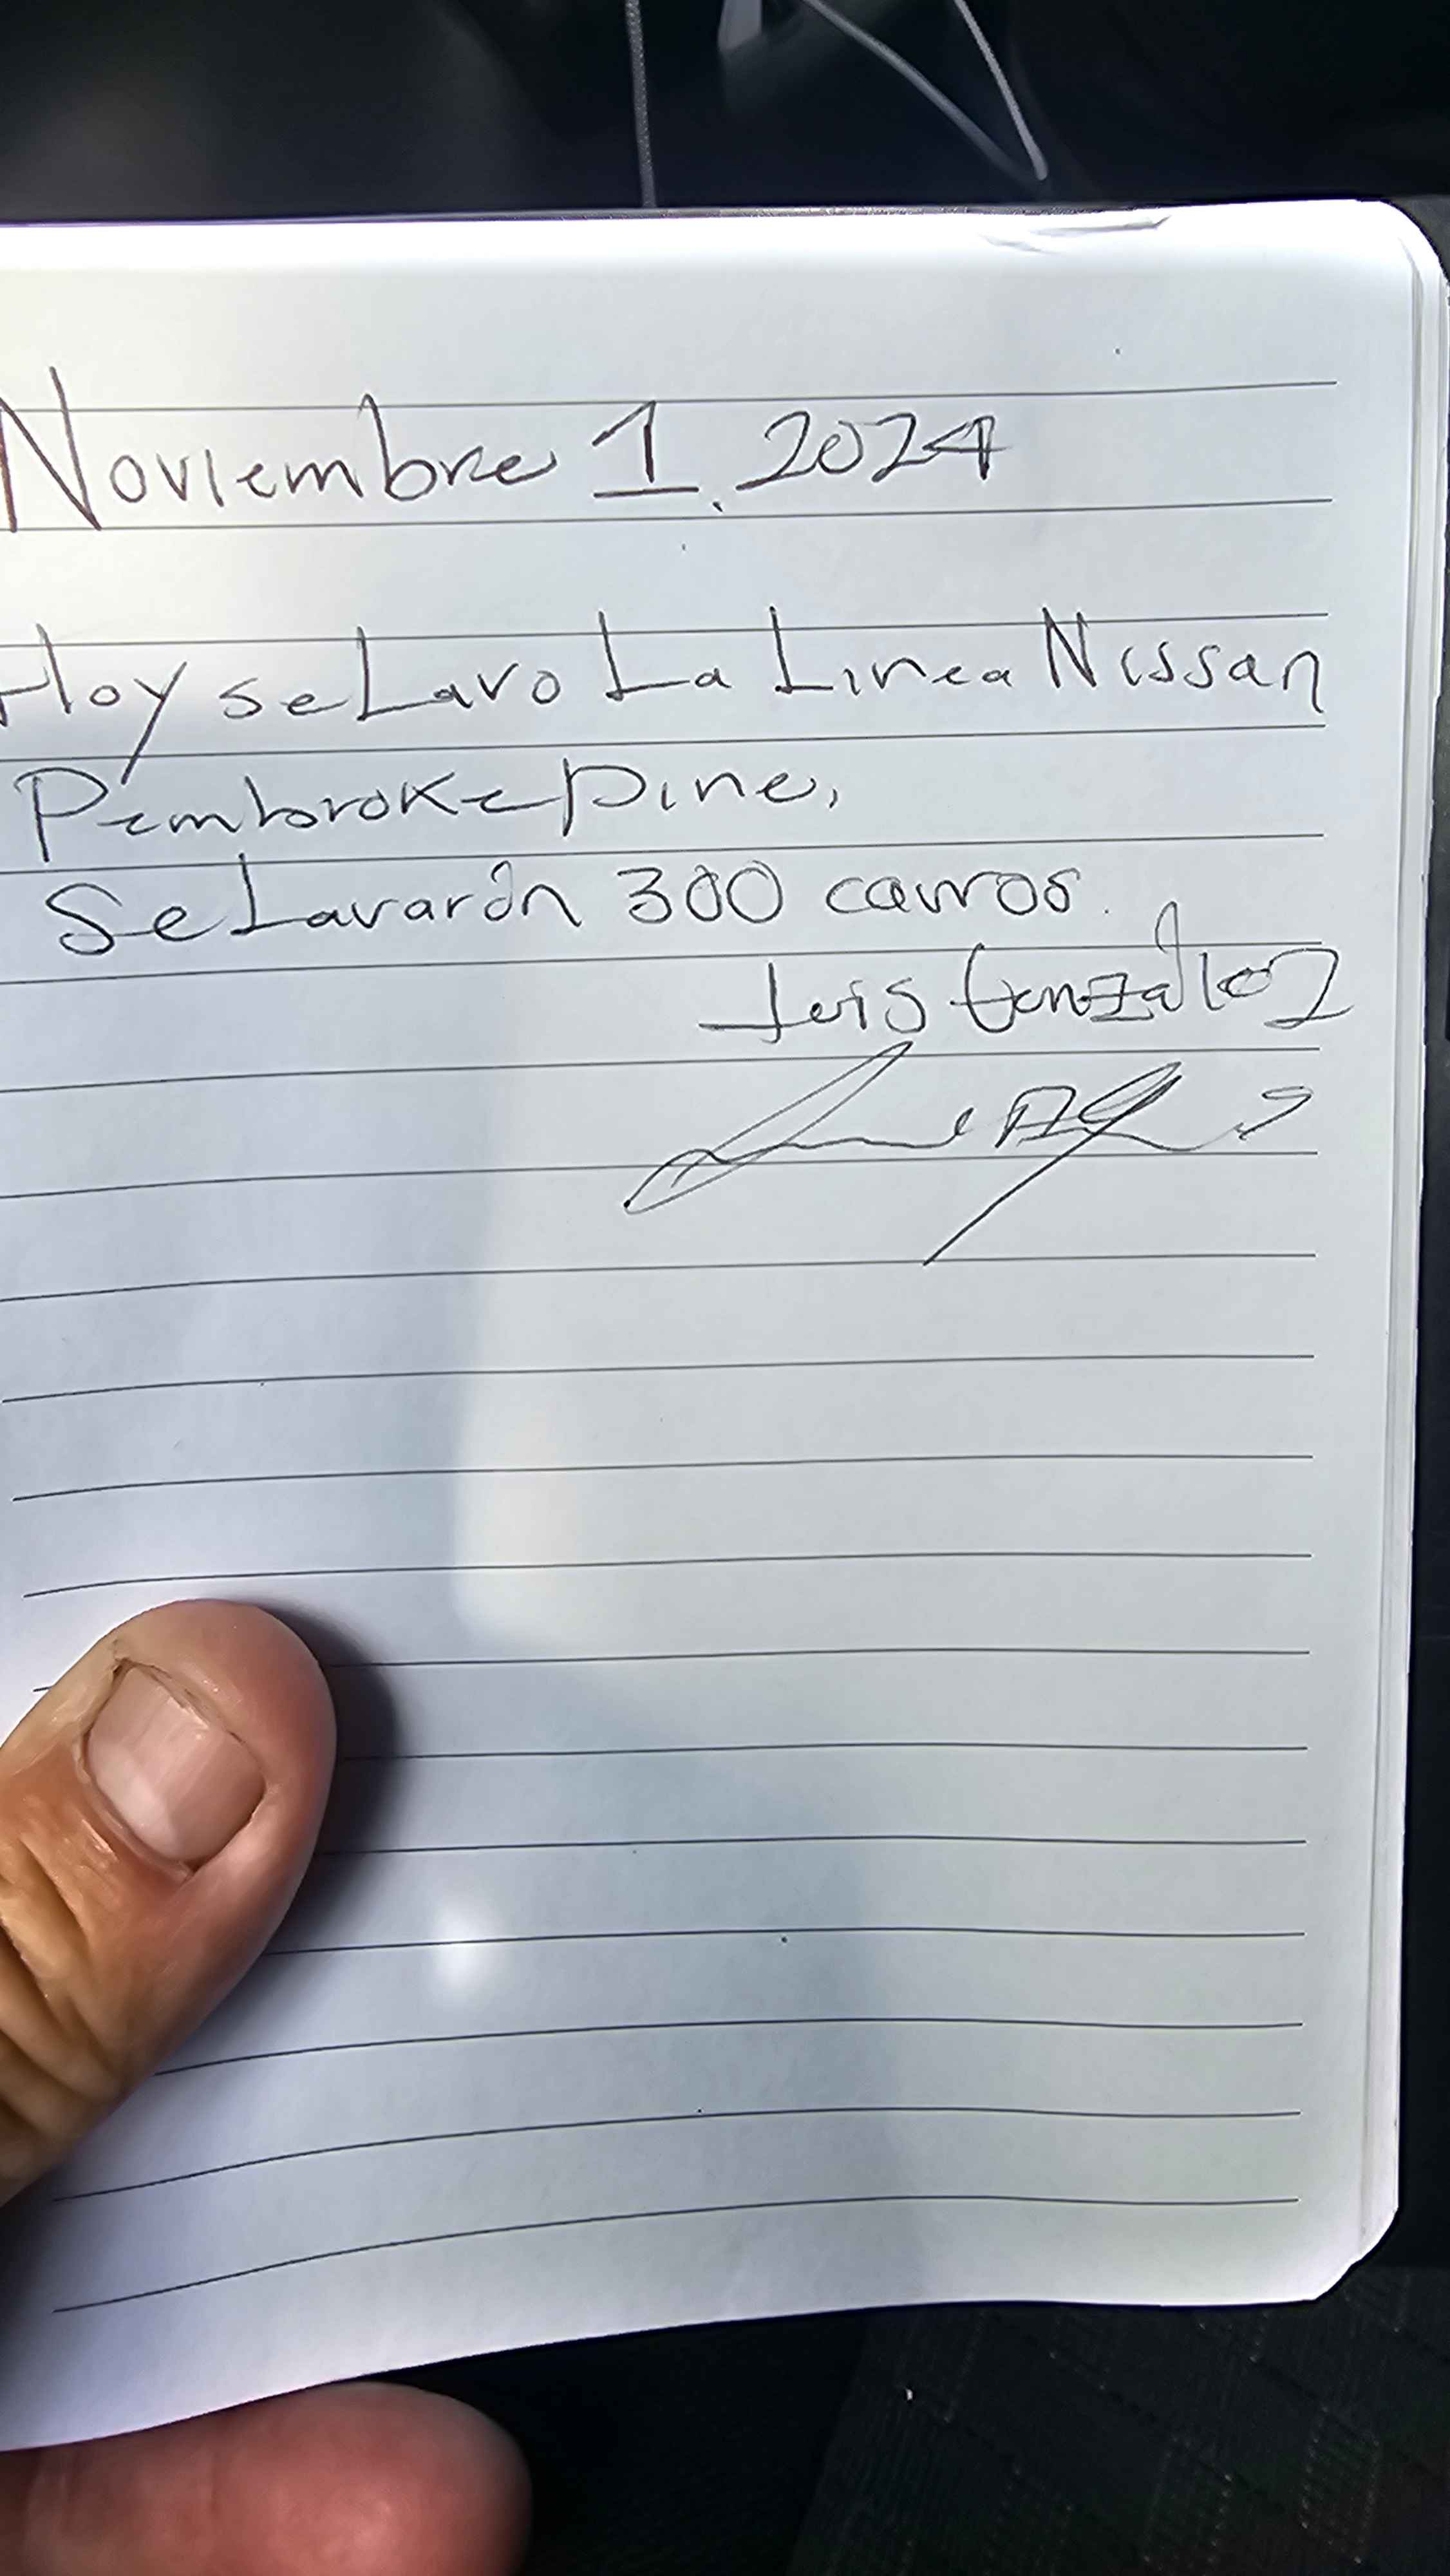 Noviembre 1, 2024
Hoy se Lavo La Linea Nissan
Pembroke pine,
Se Lavarón 300 carros.
Luis González